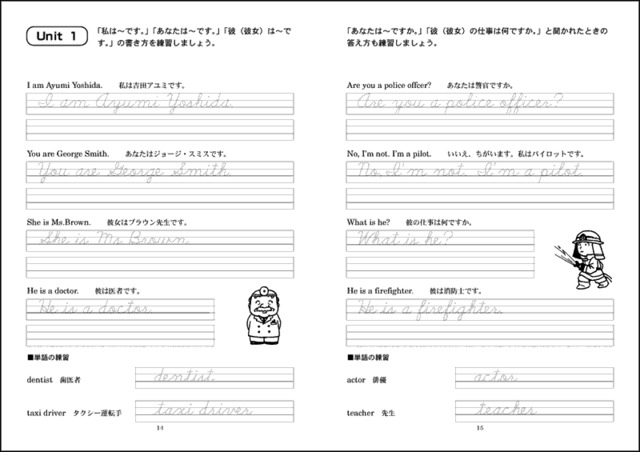 Unit 1
「私は～です。」「あなたは～です。」「彼（彼女）は～で
す。」の書き方を練習しましょう。
I am Ayumi Yoshida. 私は吉田アユミです。
I am Ayumi Yoshida.
You are George Smith. あなたはジョージ・スミスです。
You are George Smith.
She is Ms.Brown. 彼女はブラウン先生です。
She is Ms Brown
He is a doctor. 彼は医者です。
He is a doctor.
■単語の練習
dentist 歯医者
dentist
taxi driver タクシー運転手
taxi driver
14
「あなたは～ですか。」「彼（彼女）の仕事は何ですか。」と聞かれたときの
答え方も練習しましょう。
Are you a police offcer? あなたは警官ですか。
Are you a police officer?
No, I'm not. I'm a pilot. いいえ、ちがいます。私はパイロットです。
No, I'm not. I'm a pilot.
What is he? 彼の仕事は何ですか。
What is he?
He is a firefighter. 彼は消防士です。
He is a firefighter.
■単語の練習
actor 俳優
actor
teacher 先生
teacher
15